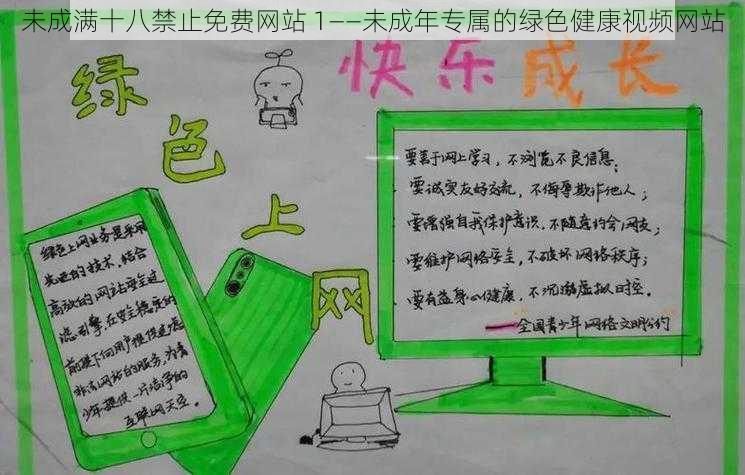 未成满十八禁止免费网站 1——未成年专属的绿色健康视频网站
绿色上网
快乐成长
绿色上网业务是采用
先进的技术,结合
高效的网站安全过
滤引擎,在安全稳定的
前提下向用户提供过滤
非法网站的服务,为青
少年提供一片洁净的
互联网天空。
要善于网上学习,不浏览不良信息;
要诚实友好交流,不侮辱欺诈他人;
要增强自我保护意识,不随意约会网友;
要维护网络安全,不破坏网络秩序;
要有益身心健康,不沉溺虚拟时空。
——全国青少年网络文明公约